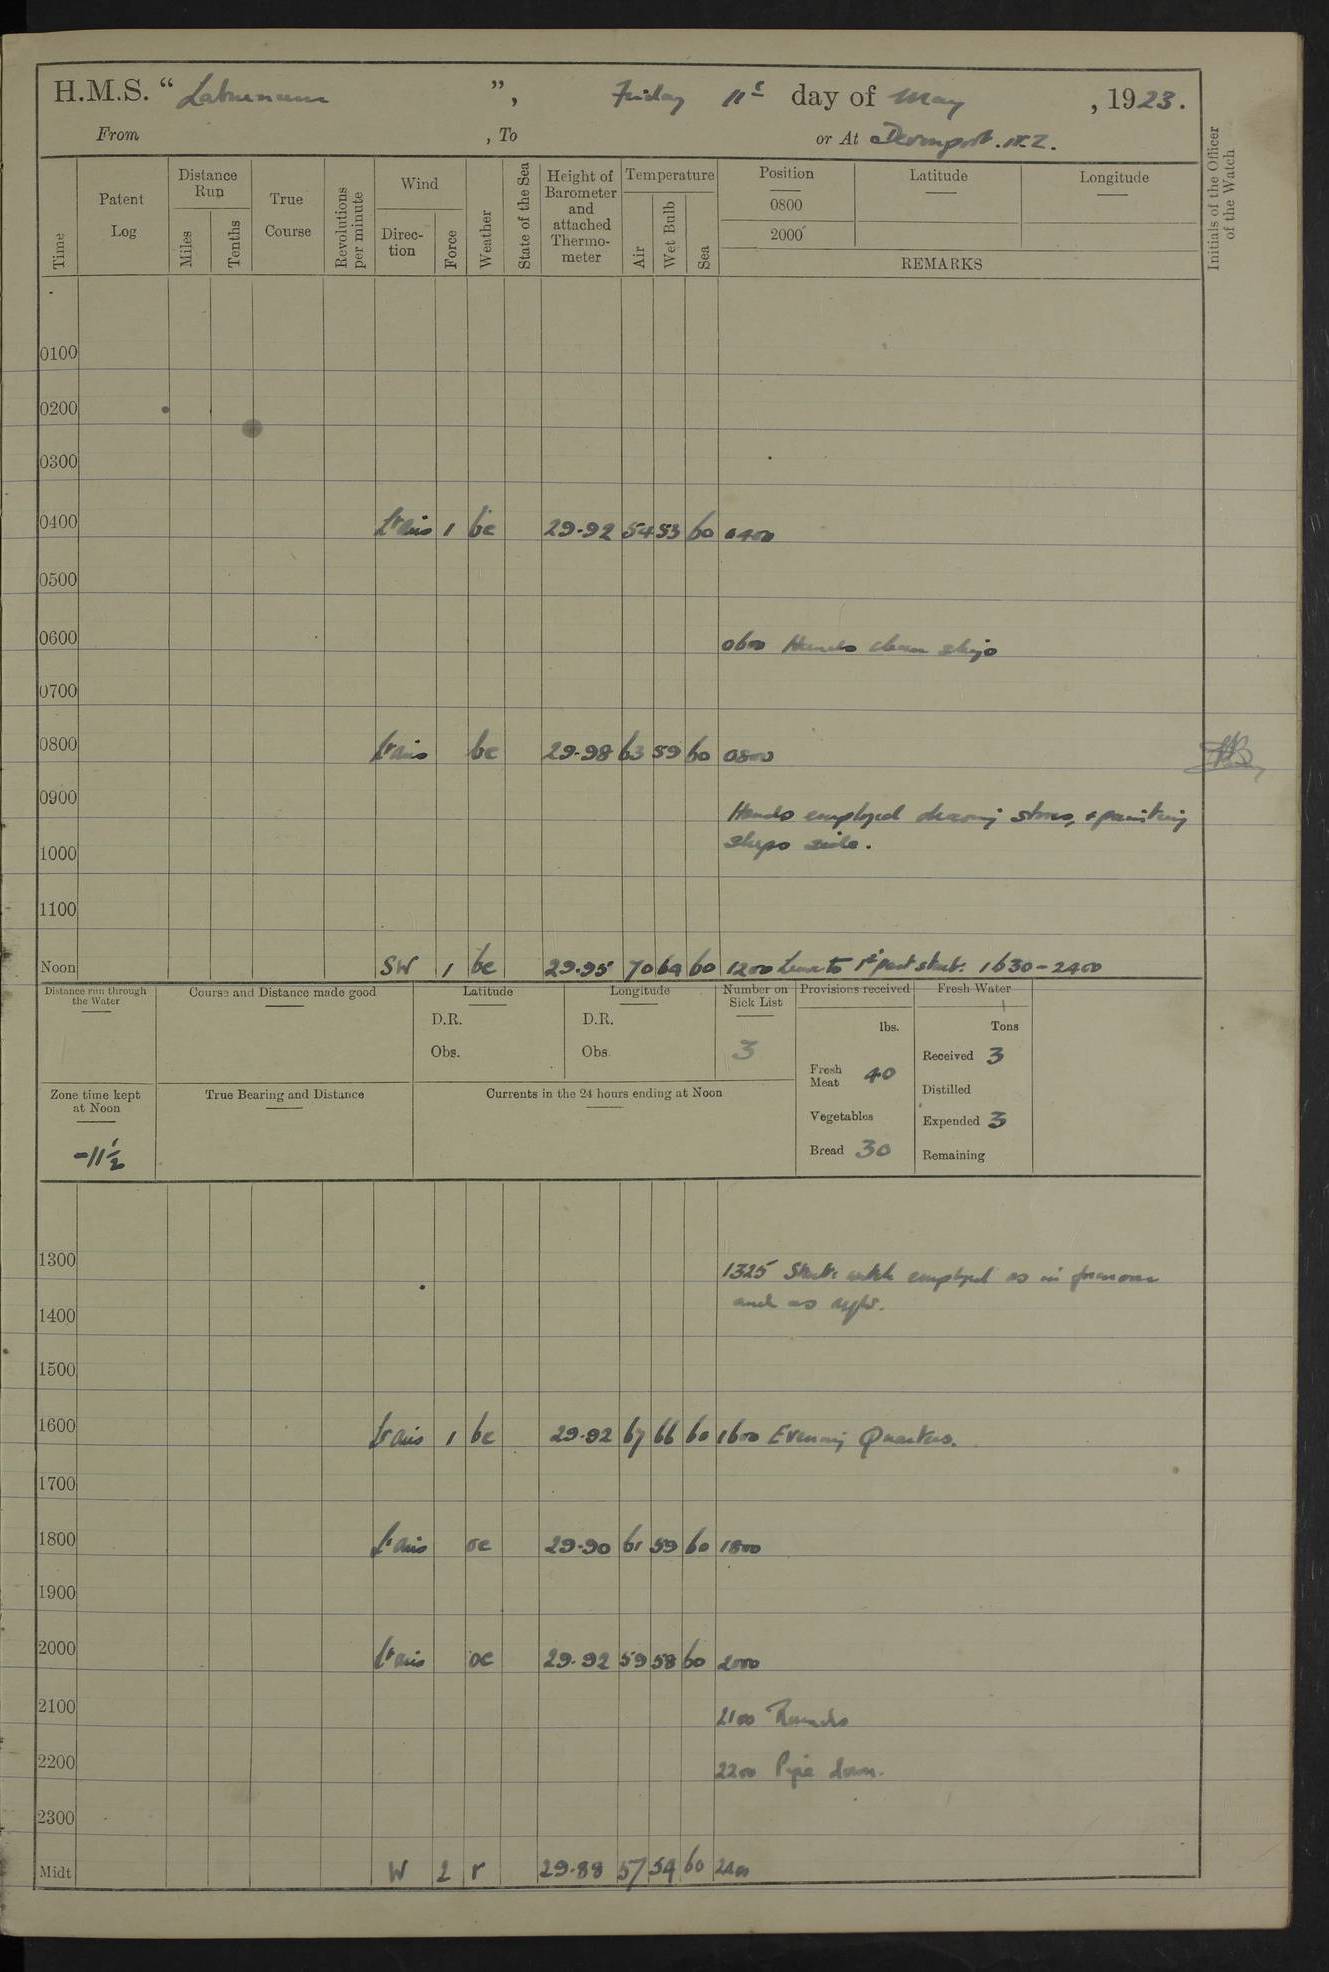 H.M.S. “ Laburnum ”, Friday 11th day of May , 1923.
From , To or At Devonport. N.Z.
Time
Patent Log
Distance Run
Miles
Tenths
True Course
Revolutions per minute
Wind
Direc- tion
Force
Weather
State of the Sea
Height of Barometer and attached Thermo- meter
Temperature
Air
Wet Bulb
Sea
Position
0800
2000
Latitude
Longitude
REMARKS
Initials of the Officer of the Watch
0100
0200
0300
0400 1 bc 29.92 54 53 60 0400
0500
0600 0600 Hands clean ship
0700
0800 bc 29.98 63 59 60 0800
0900 Hands employed drawing stores, & painting
ships side.
1000
1100
Noon SW 1 bc 29.95 70 64 60 1200 Leave to 1st part 1630 - 2400
Distance run through the Water
Course and Distance made good
Latitude
D.R.
Obs.
Longitude
D.R.
Obs.
Number on Sick List
3
Provisions received
lbs.
Fresh Meat 40
Vegetables
Bread 30
Fresh Water
Tons
Received 3
Distilled
Expended 3
Remaining
Zone time kept at Noon
-11½
True Bearing and Distance
Currents in the 24 hours ending at Noon
1300 1325 employed as in forenoon
and as
1400
1500
1600 1 bc 29.92 67 66 60 1600 Evening Quarters.
1700
1800 oc 29.90 61 59 60 1800
1900
2000 oc 29.92 59 58 60 2000
2100 2100 Rounds
2200 2200 Pipe down.
2300
Midt W 2 r 29.88 57 54 60 2400